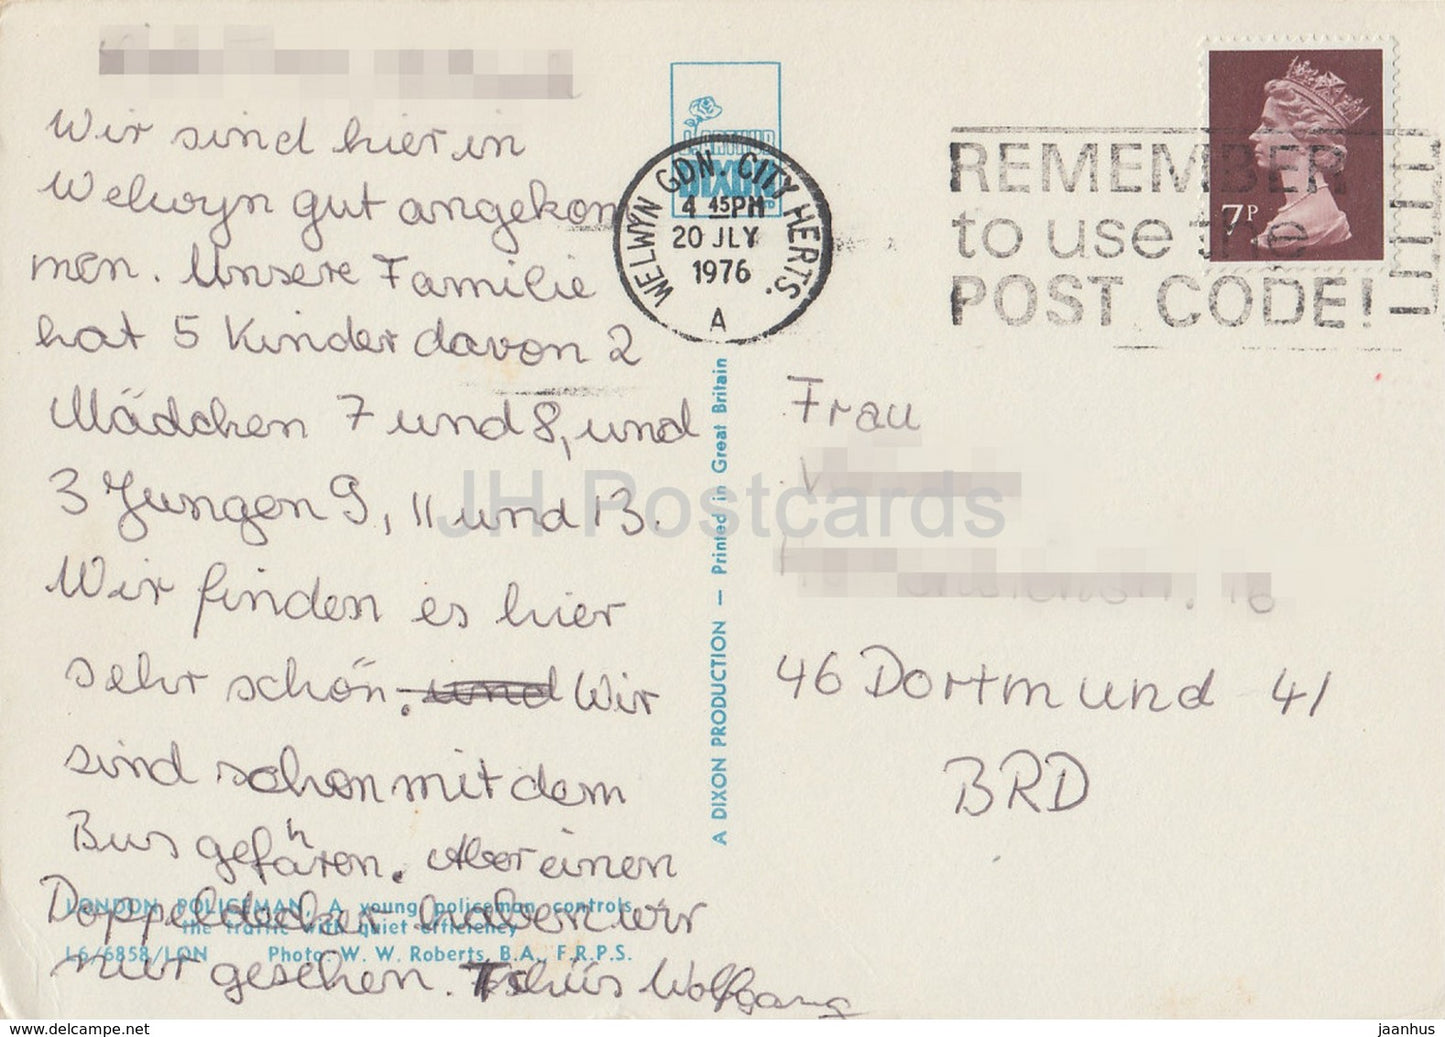 Wir sind hier in
Welwyn gut angekom
men. Unsere Familie
hat 5 Kinder davon 2
Mädchen 7 und 8, und
3 Jungen 9, 11 und 13.
Wir finden es hier
sehr schön. und Wir
sind schon mit dem
Bus gefähren. Aber einen
Doppeldecker haben wir
nur gesehen. Tschüs Wolfgang
LONDON POLICEMAN, A young policeman controls
the traffic with quiet efficiency
L6/6858/LON Photo: W. W. Roberts, B.A., F.R.P.S.
J. ARTHUR
DIXON
WELWYN GDN. CITY HERTS.
4 45PM
20 JLY
1976
A
A DIXON PRODUCTION — Printed in Great Britain
REMEMBER
to use the
POST CODE!
7P
Frau
16
46 Dortmund 41
BRD
JH Postcards
www.delcampe.net
jaanhus